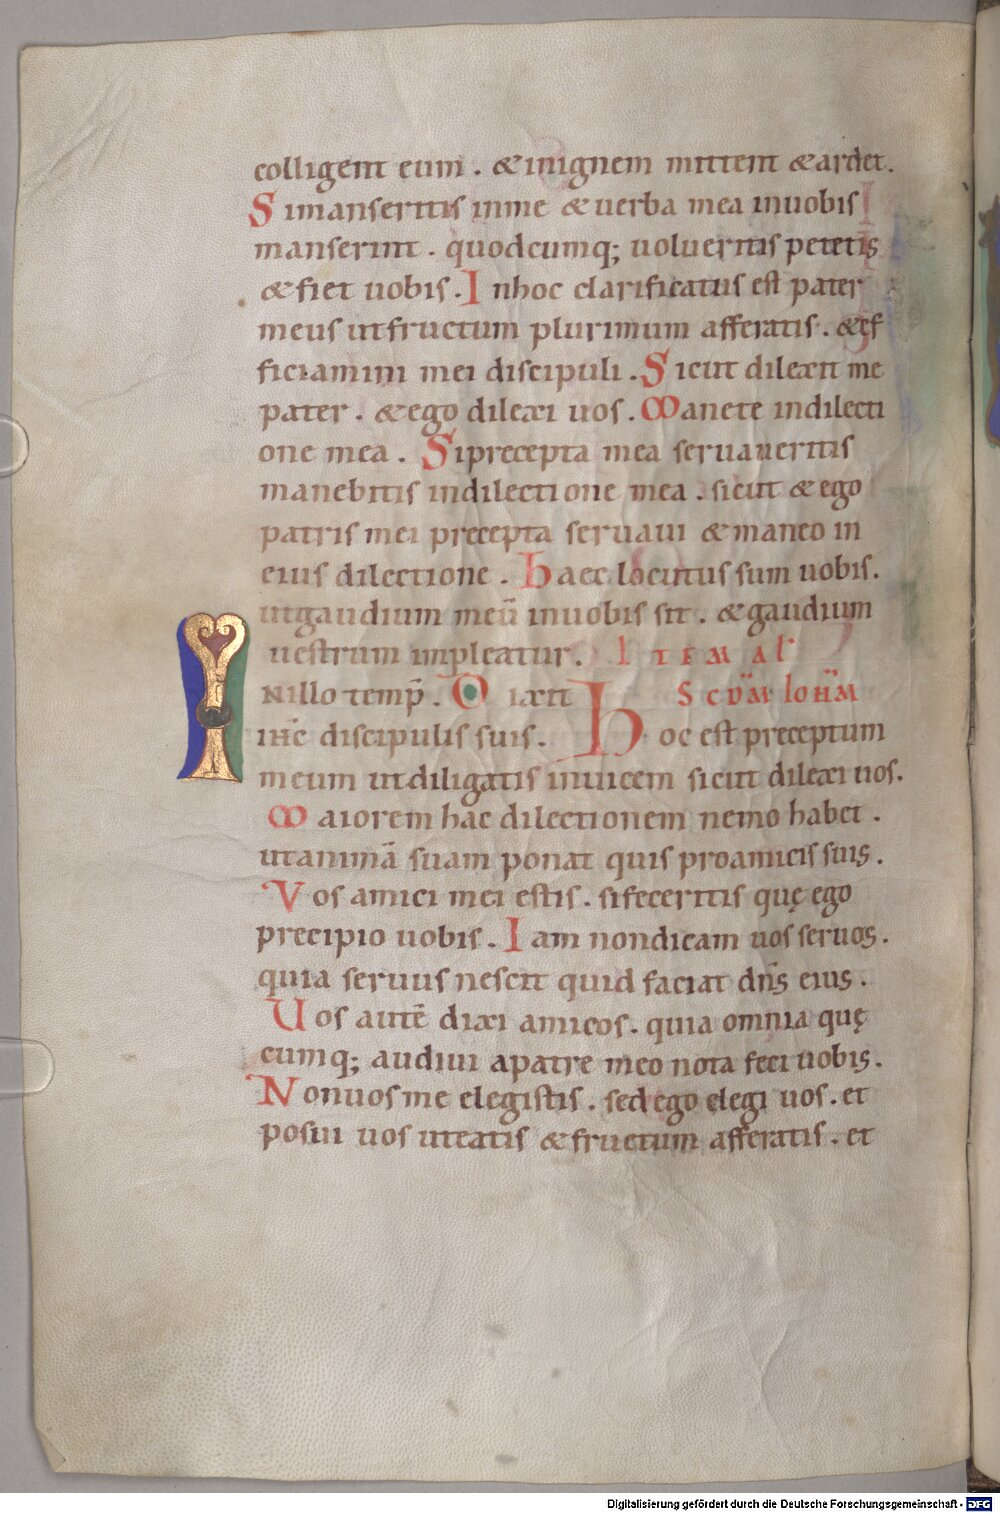 colligent eum . & inignem mittent & ardet.
Simanseritis inme & uerba mea inuobis
manserint . quodcumq; uolueritis petetis
& fiet uobis . Inhoc clarificatus est pater
meus utfructum plurimum afferatis . & ef
ficiamini mei discipuli . Sicut dilexit me
pater . & ego dilexi uos . Manete indilecti
one mea . Siprecepta mea seruaueritis
manebitis indilectione mea . sicut & ego
patris mei precepta seruaui & maneo in
eius dilectione . Haec locutus sum uobis .
utgaudium meū inuobis sit . & gaudium
uestrum impleatur . ITEM AL
Nillo temp̄ . Dixit SCDM IOHM
ihc̄ discipulis suis . Hoc est preceptum
meum utdiligatis inuicem sicut dilexi uos .
Maiorem hac dilectionem nemo habet .
utanimā suam ponat quis proamicis suis .
Vos amici mei estis . sifeceritis quę ego
precipio uobis . Iam nondicam uos seruos .
quia seruus nescit quid faciat dn̄s eius .
Uos autē dixi amicos . quia omnia quę
cumq; audiui apatre meo nota feci uobis .
Nonuos me elegistis . sed ego elegi uos . et
posui uos uteatis & fructum afferatis . et
Digitalisierung gefördert durch die Deutsche Forschungsgemeinschaft - DFG